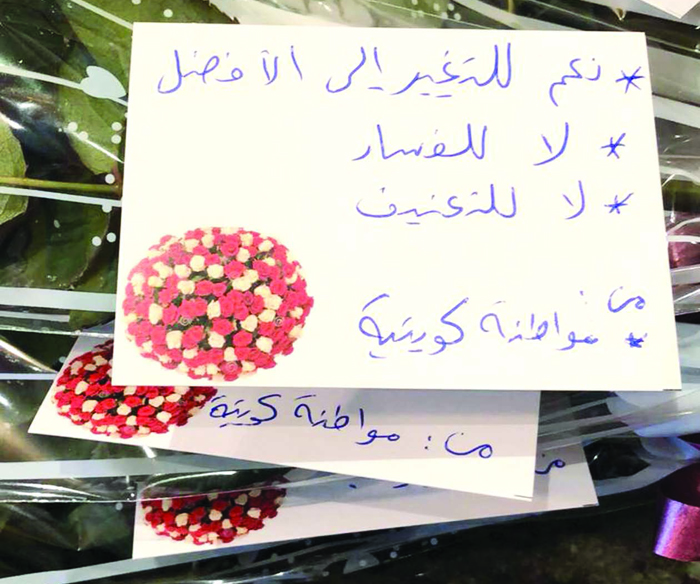 * نعم للتغيير إلى الأفضل
* لا للفساد
* لا للتعنيف
من:
* مواطنة كويتية
من: مواطنة كويتية
من